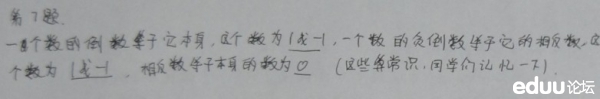 第7题.
一个数的倒数等于它本身,这个数为1或-1,一个数的负倒数等于它的相反数,这
个数为 1或-1 ,相反数等于本身的数为0 (这些是常识,同学们记忆一下).
eduu论坛